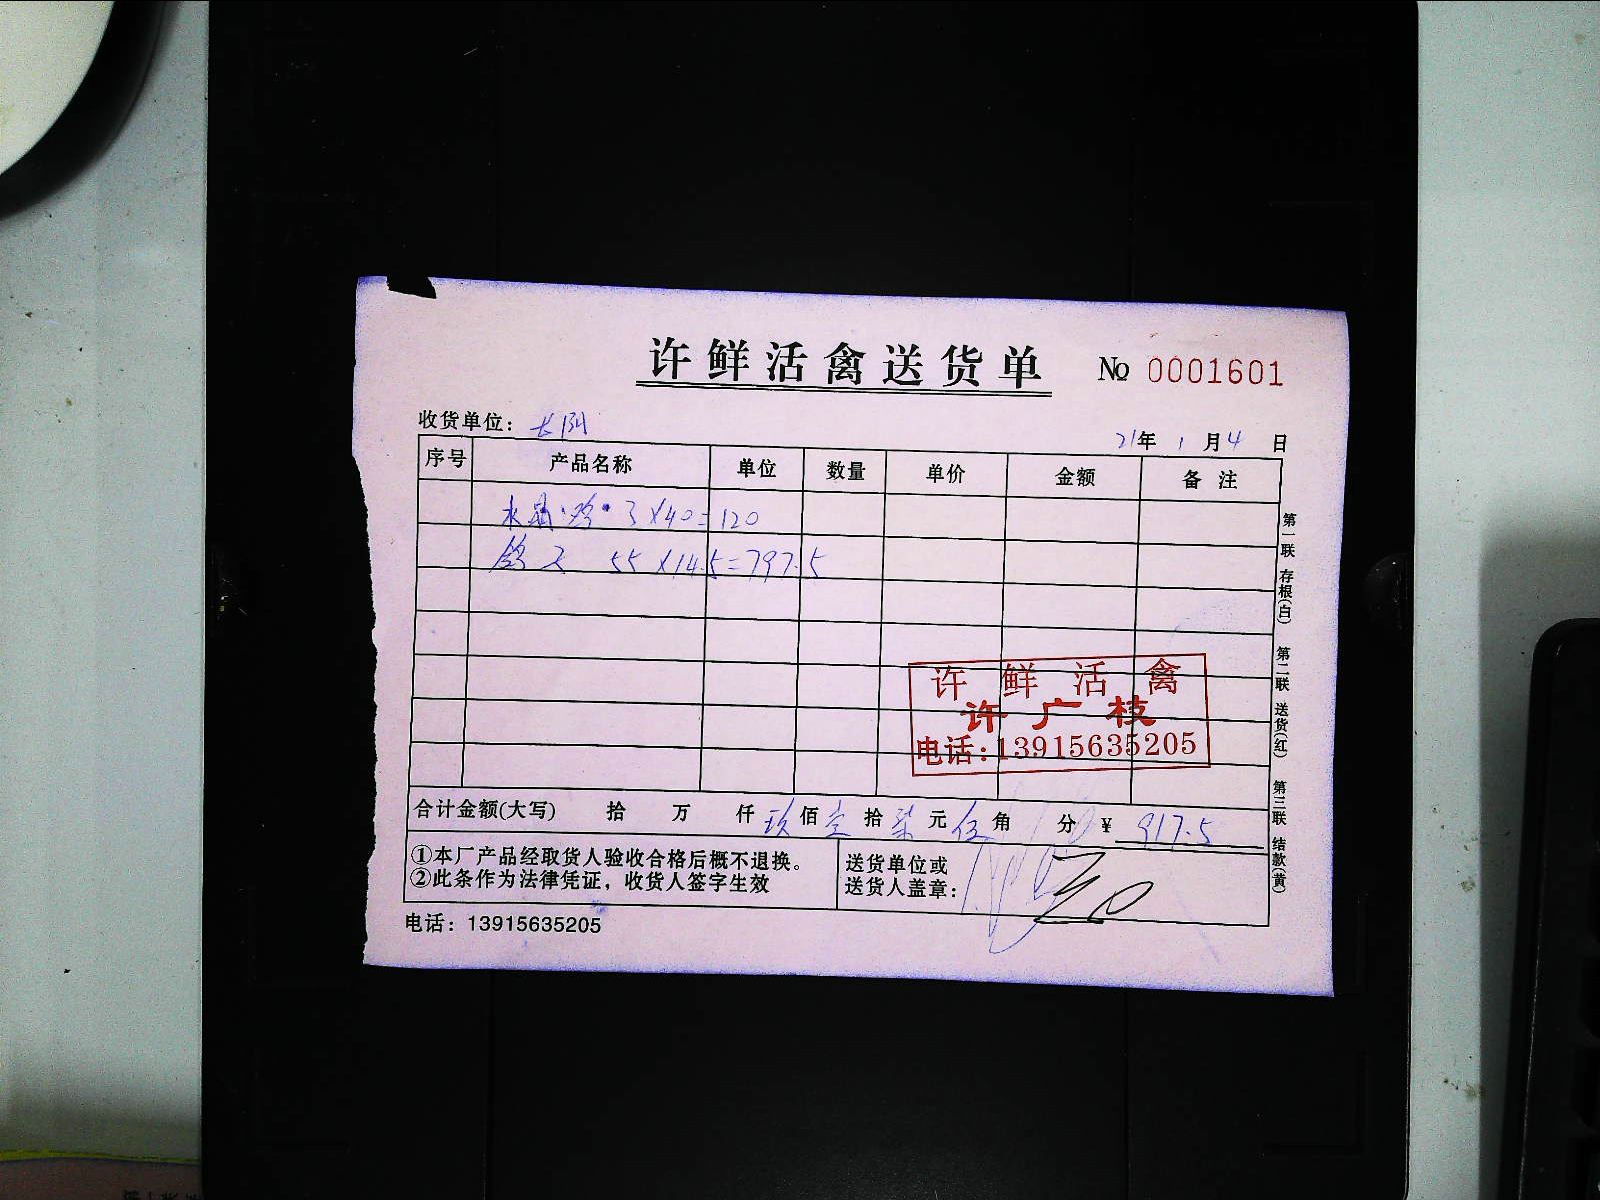 许鲜活禽送货单 № 0001601
收货单位：长阳
21年 1月4日
序号 产品名称 单位 数量 单价 金额 备注
水晶 3×40=120
55×14.5=797.5
许鲜活禽
许广枝
电话：13915635205
合计金额(大写) 拾 万 仟 玖佰壹拾柒元伍角 分 ¥ 917.5
①本厂产品经取货人验收合格后概不退换。
②此条作为法律凭证，收货人签字生效
送货单位或
送货人盖章：
电话：13915635205
第一联 存根(白) 第二联 送货(红) 第三联 结款(黄)